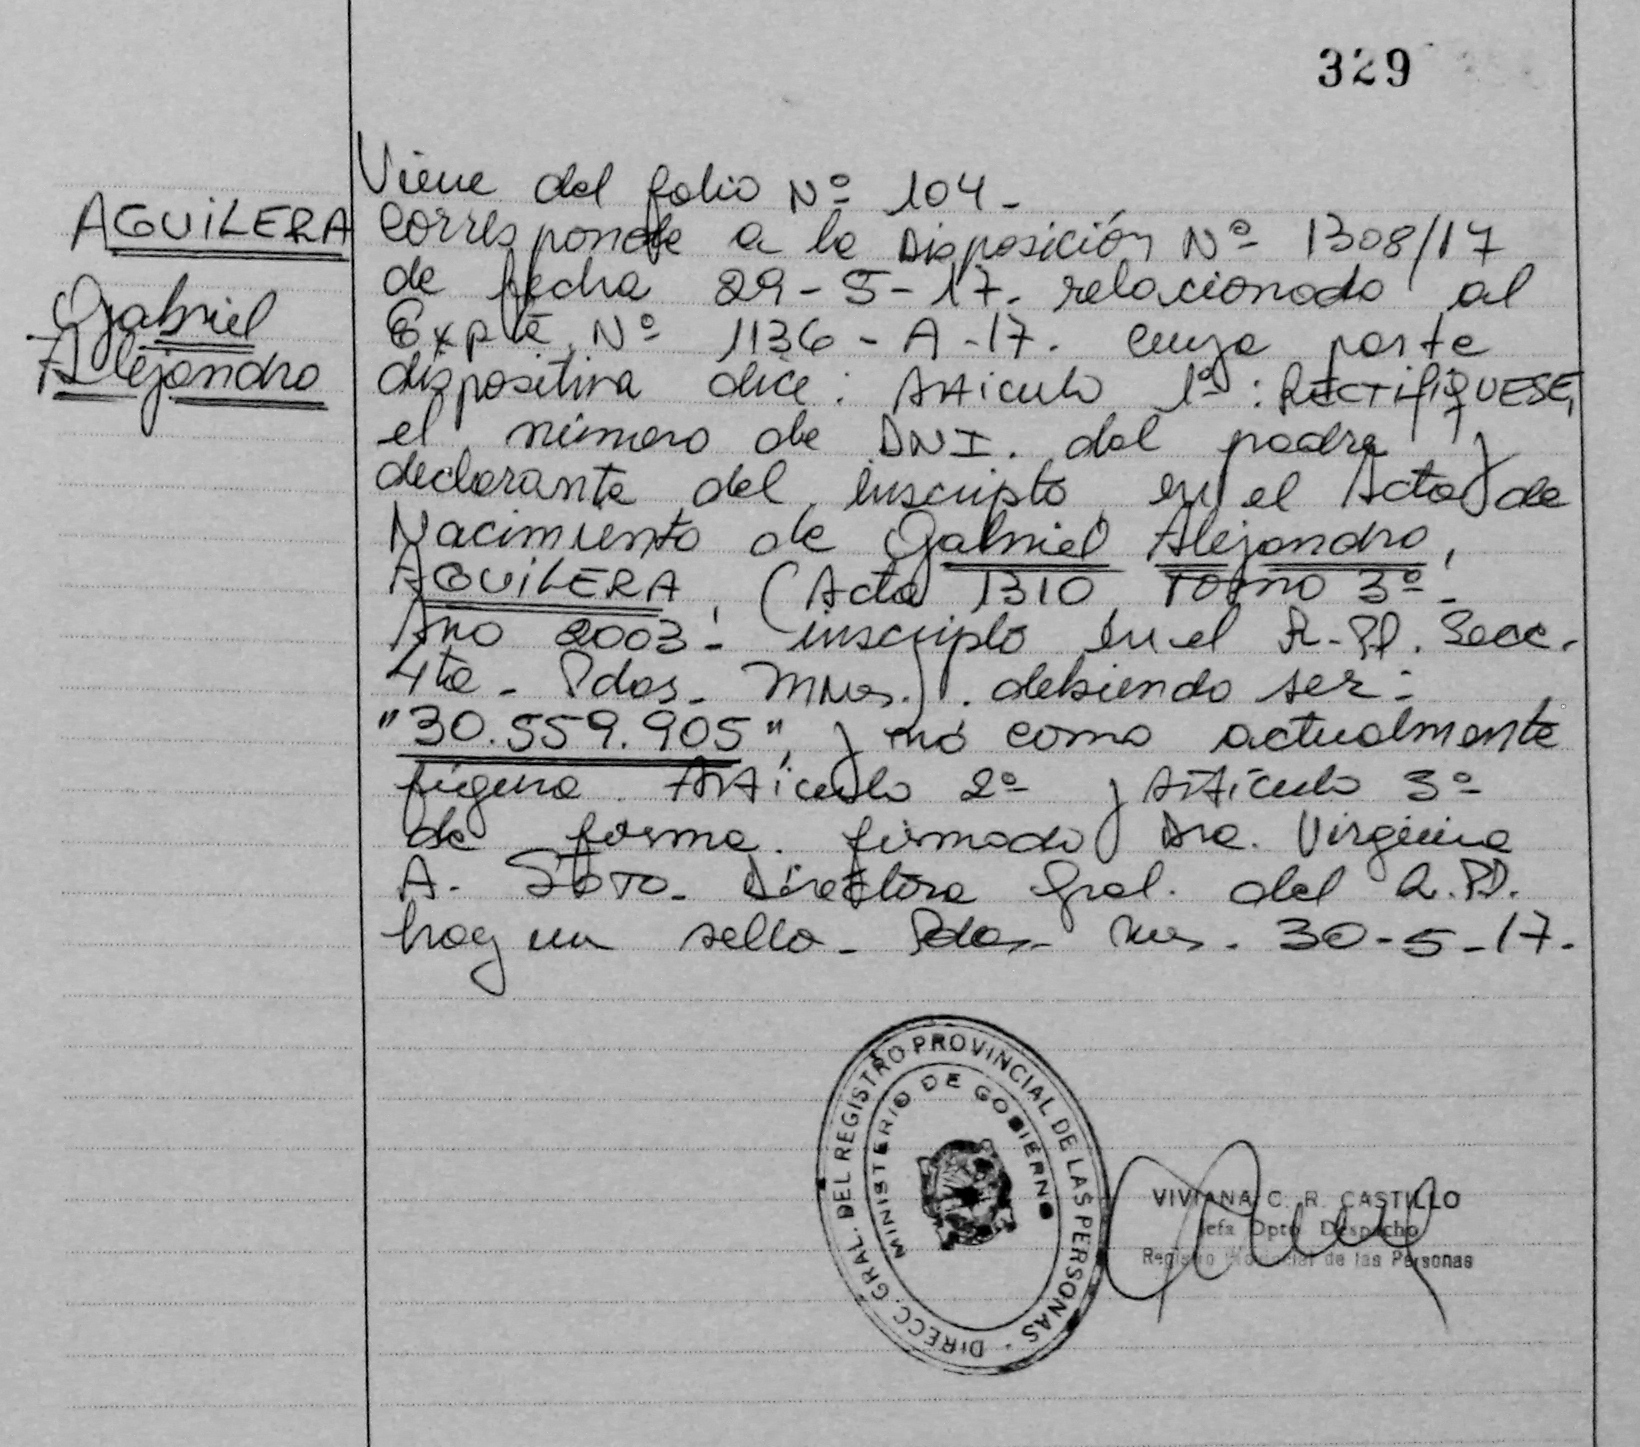 329
AGUILERA
Gabriel
Alejandro
Viene del folio Nº 104 -
Corresponde a la Disposición Nº 1308/17
de fecha 29-5-17. relacionado al
Expte. Nº 1136-A-17. cuya parte
dispositiva dice: Artículo 1º: RECTIFIQUESE,
el número de DNI. del padre y
declarante del inscripto en el Acta de
Nacimiento de Gabriel Alejandro,
AGUILERA, (Acta 1310 Tomo 3º-
Año 2003- inscripto en el R.PP. Secc.
4ta - Pdas - Mnes.). debiendo ser:
"30.559.905", y nó como actualmente
figura. Artículo 2º y Artículo 3º
de forma. firmado Dra. Virginia
A. SOTO- Directora Gral. del R.PP.
hay un sello - Pdas- Mnes. 30-5-17.
DIRECC. GRAL. DEL REGISTRO PROVINCIAL DE LAS PERSONAS
MINISTERIO DE GOBIERNO
VIVIANA C. R. CASTILLO
Jefa Dpto Despacho
Registro Provincial de las Personas